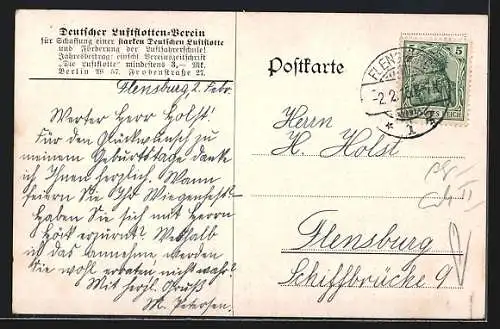 Deutscher Luftflotten-Verein
für Schaffung einer starken Deutschen Luftflotte
und Förderung der Luftfahrerschule!
Jahresbeitrag: einschl. Vereinszeitschrift
"Die Luftflotte" mindestens 3,— Mk.
Berlin W 57. Frobenstraße 27.
Flensburg 2. Febr.
Werter Herr Holst!
Für den Glückwunsch zu
meinem Geburtstage danke
ich Ihnen herzlich. Wann
feiern Sie Ihr Wiegenfest?
Haben Sie sich mit Herrn
Höck erzürnt? Weshalb
in das annehme werden
Sie wohl erraten nicht wahr?
Mit herzl. Gruß
M. Petersen.
Postkarte
5 5
DEUTSCHES REICH
FLENSBURG
-2.2.
* 1 *
Herrn
H. Holst
Flensburg
Schiffbrücke 9